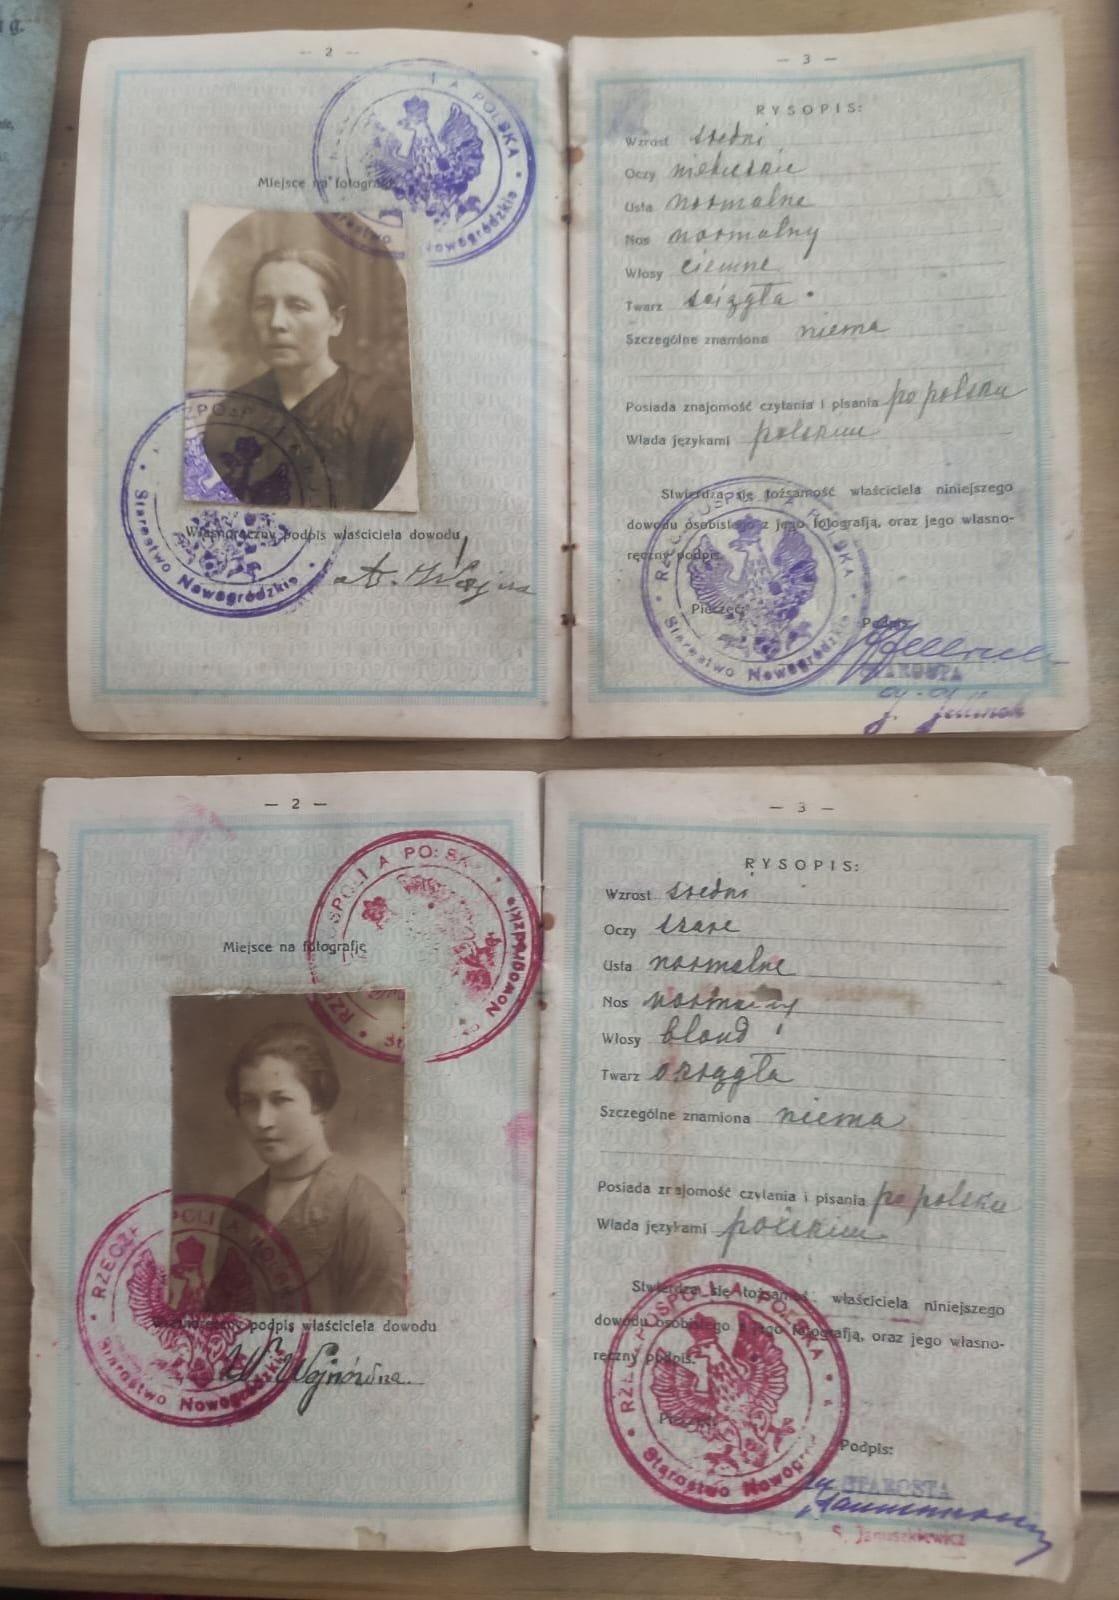 g.
— 2 —
Miejsce na fotografję
A POLSKA
Starostwo Nowogródzkie
RZPOSP
Starostwo Nowogródzkie
Własnoręczny podpis właściciela dowodu
A. Wojna
— 3 —
RYSOPIS:
Wzrost średni
Oczy niebieskie
Usta normalne
Nos normalny
Włosy ciemne
Twarz ściągła
Szczególne znamiona niema
Posiada znajomość czytania i pisania po polsku
Włada językami polskim
Stwierdza się tożsamość właściciela niniejszego
dowodu osobistego z jego fotografją, oraz jego własno-
ręczny podpis.
RZECZPOSPOLITA POLSKA
Starostwo Nowogródzkie
Pieczęć:
Podpis:
STAROSTA
— 2 —
Miejsce na fotografję
RZECZPOSPOLITA POLSKA
Starostwo Nowogródzkie
RZECZPOSPOLITA POLSKA
Starostwo Nowogródzkie
Własnoręczny podpis właściciela dowodu
W. Wojnówna.
— 3 —
RYSOPIS:
Wzrost średni
Oczy szare
Usta normalne
Nos normalny
Włosy blond
Twarz okrągła
Szczególne znamiona niema
Posiada znajomość czytania i pisania po polsku
Włada językami polskim
Stwierdza się tożsamość właściciela niniejszego
dowodu osobistego z jego fotografją, oraz jego własno-
ręczny podpis.
RZECZPOSPOLITA POLSKA
Starostwo Nowogr
Pieczęć:
Podpis:
STAROSTA
S. Januszkiewicz